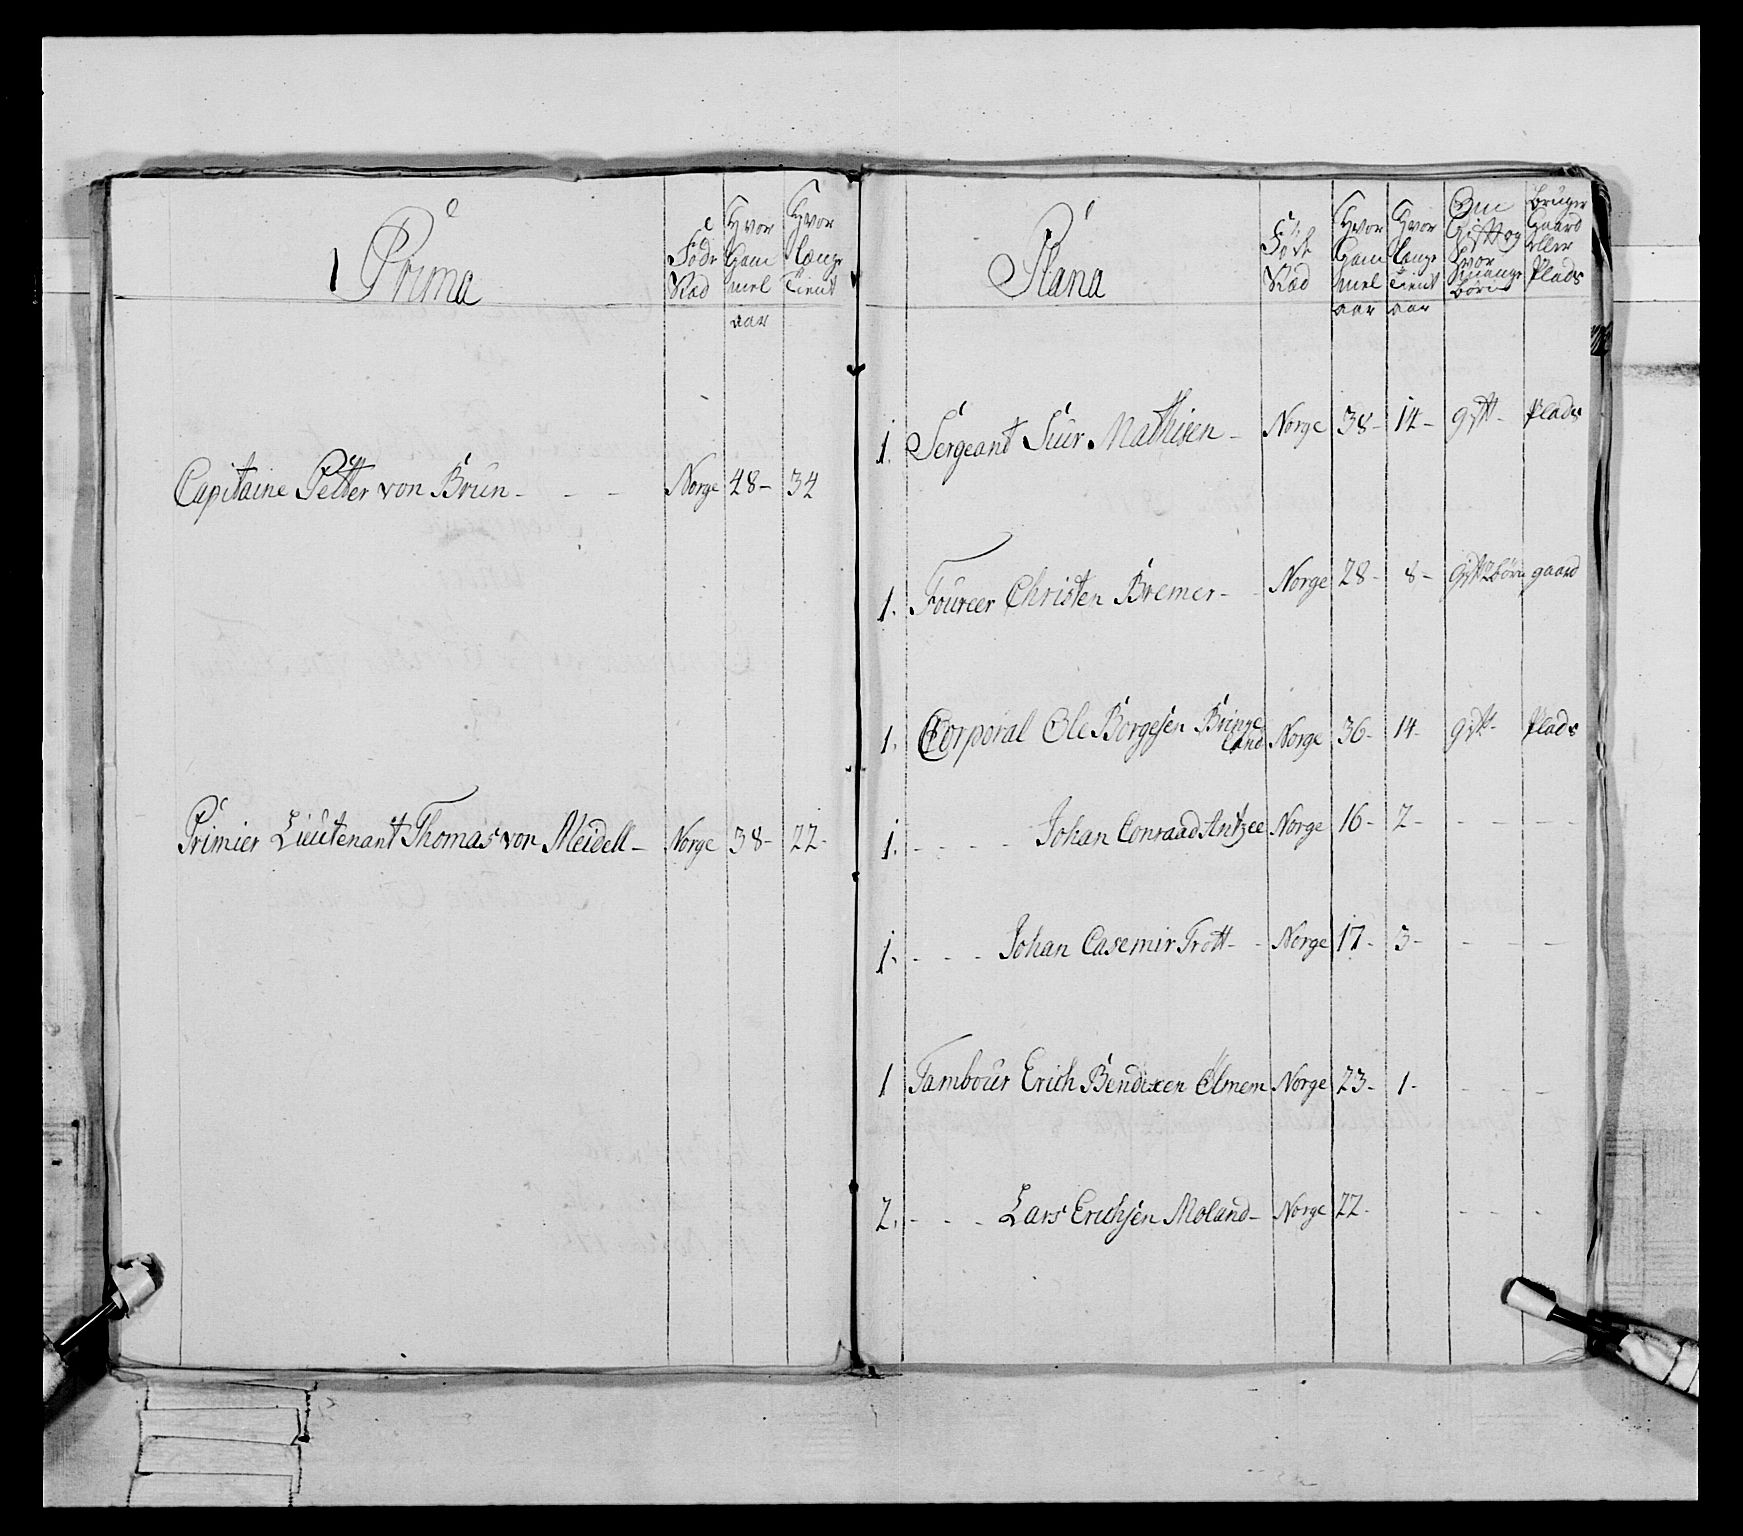 Prima
Føde Stæd
Hvor Gammel aar
Hvor Længe Tient
Capitaine Petter von Brün - - - Norge 48- 34
Primier Lieutenant Thomas von Meidell - Norge 38- 22-
Plana
Føde Stæd
Hvor Gammel aar
Hvor Længe Tient aar
Om Gift og hvor mange børn
bruger Gaard eller Plads
1. Sergeant Siur Mathisen - Norge 38- 14- gift- Plads
1. Foureer Christen Bremer - - Norge 28- 8- gift 2 børn gaard
1. Corporal Ole Borgesen Bringe
land Norge 36- 14- gift- Plads
1. - - - - Johan Conraad Antzee Norge 16- 2- - - - -
1. - - - Johan Casemir Trott - - Norge 17- 3- - - -
1 Tambour Erich Bendixen Ølmem Norge 23- 1- - - -
2. - - - Lars Erichsen Moland - Norge 22- - - -